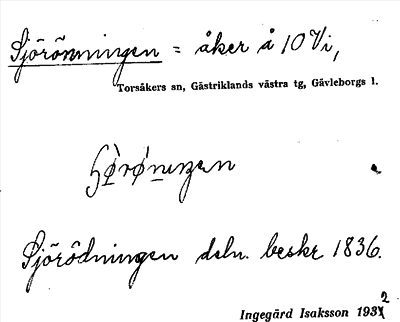 Sjörönningen = åker å 10 Vi,
Torsåkers sn, Gästriklands västra tg, Gävleborgs l.
Sjörödningen deln. beskr 1836.
Ingegärd Isaksson 1932